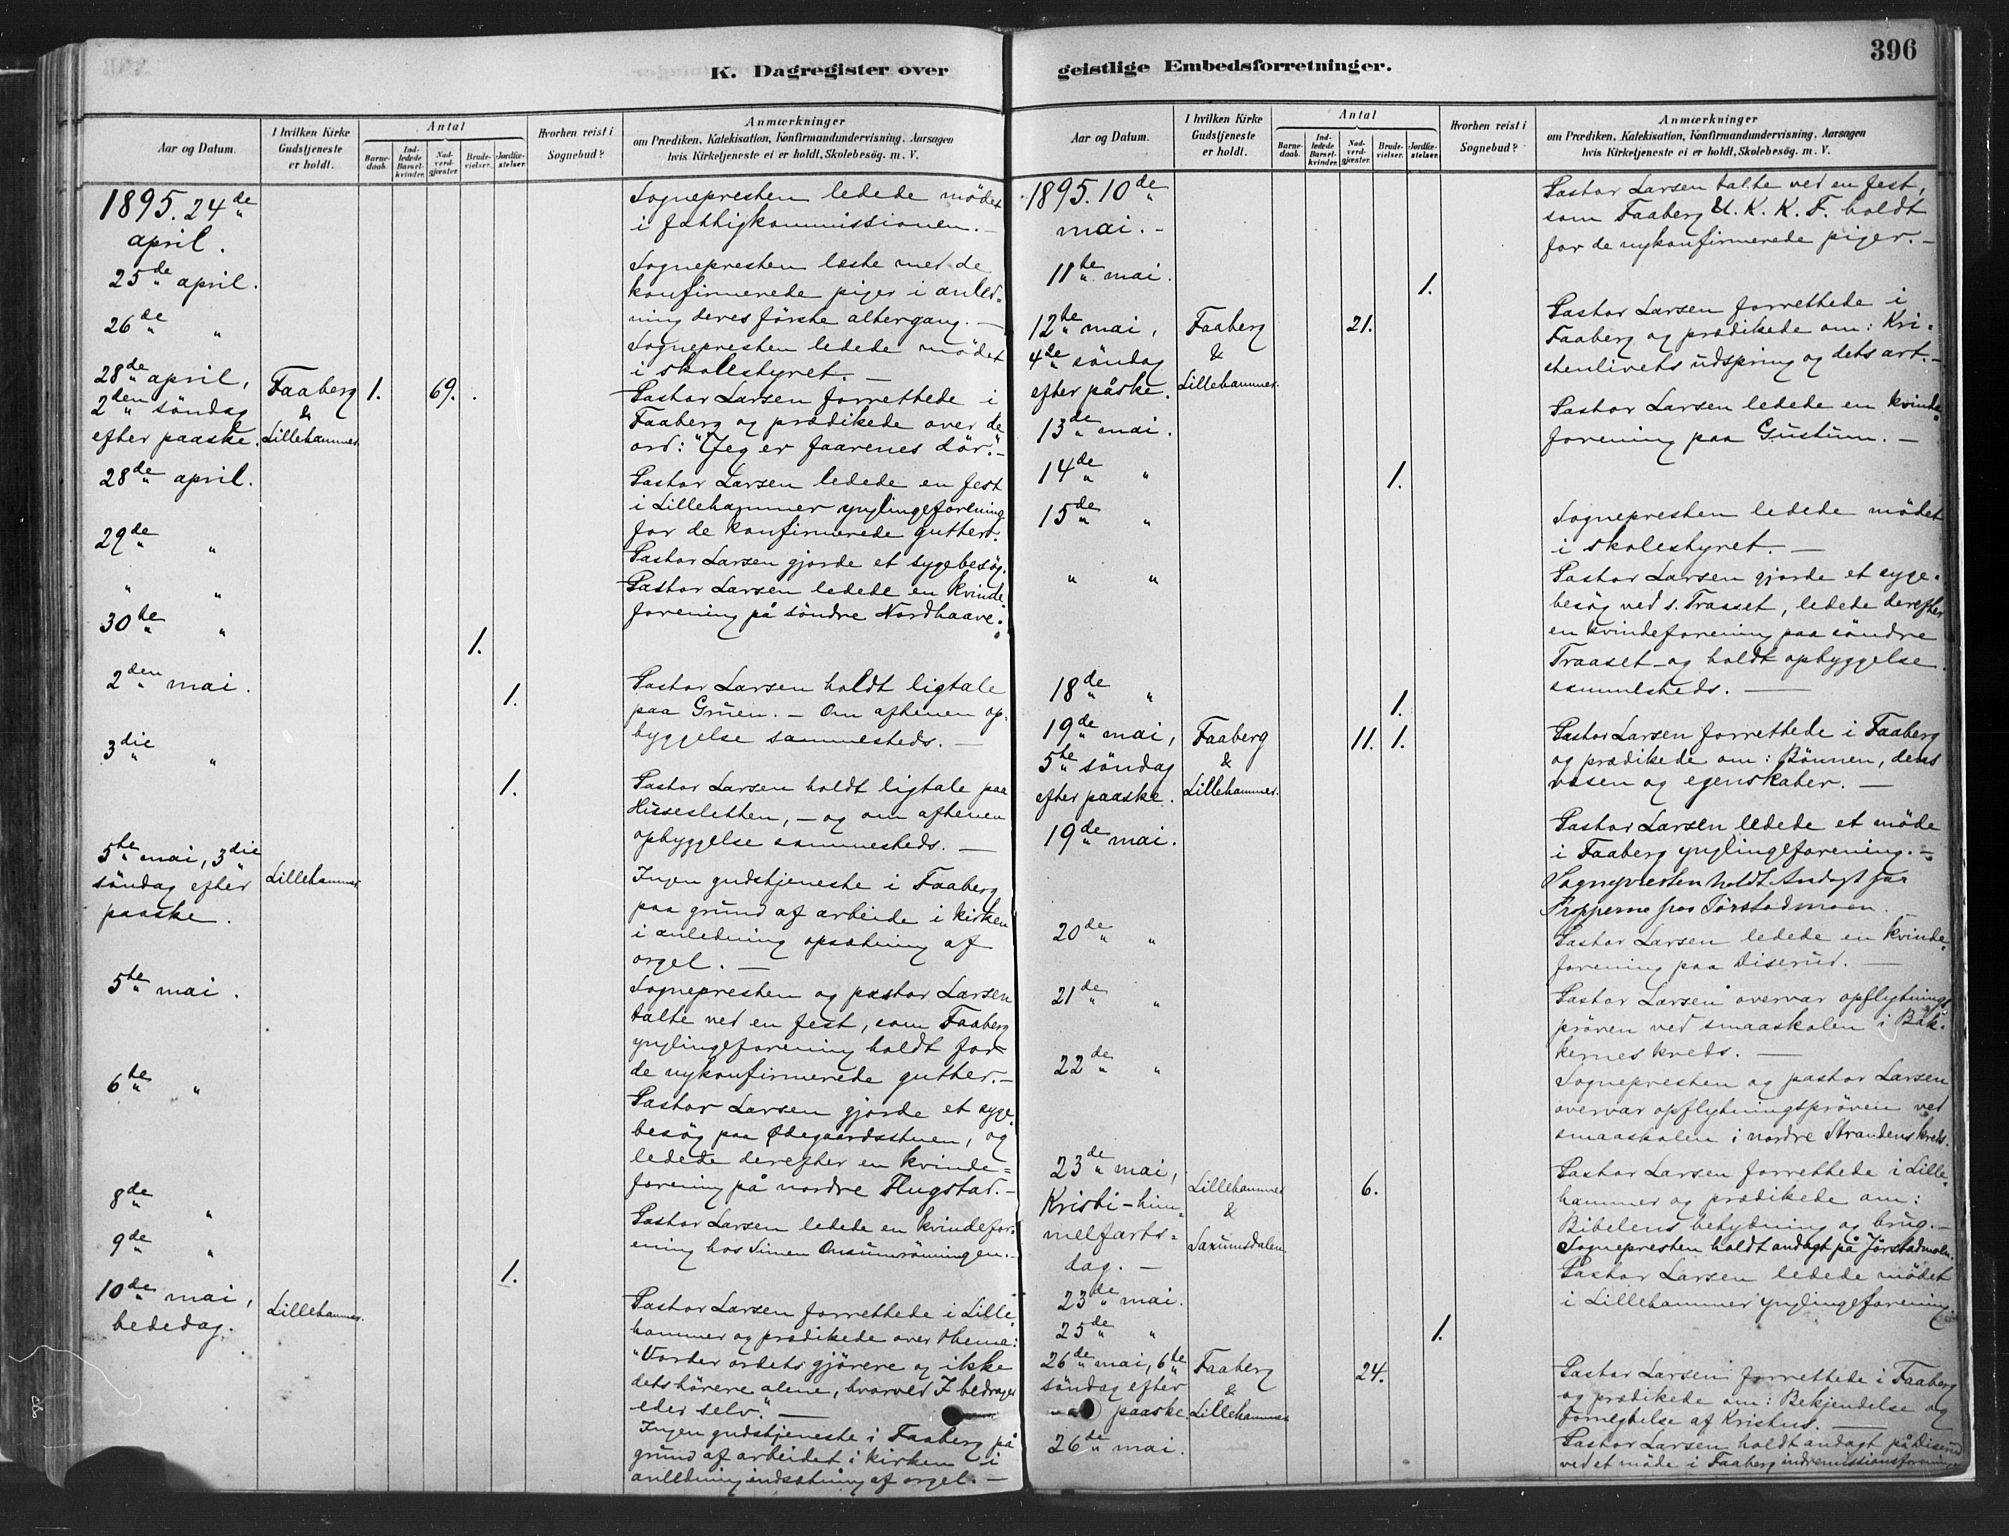 K. Dagregister over
Anmærkninger
Antal
I hvilken Kirke
Hvorhen reist i
om Prædiken, Katekisation, Konfirmandundervisning, Aarsagen
Aar og Datum.
Gudstjeneste
Sognebud?
hvis Kirketjeneste ei er holdt, Skolebesøg. m. V.
er holdt.
Barne-
daab.
Ind-
ledede
Barsel-
kvinder.
Nad-
verd-
gjæster.
Brude-
vielser.
Jordfæ-
stelser.
1895. 24de
april.
Sognepresten ledede mødet
i fattigkommissionen. —
25de april.
Sognepresten læste med de
konfirmerede piger i anled-
ning deres første altergang. —
26de "
Sognepresten ledede mødet
i skolestyret. —
28de april,
2den søndag
efter paaske.
Faaberg
&
Lillehammer.
1.
69.
Pastor Larsen forrettede i
Faaberg og prædikede over de
ord: "Jeg er faarenes dør." —
28de april.
Pastor Larsen ledede en fest
i Lillehammer ynglingeforening
for de konfirmerede gutter.
29de "
Pastor Larsen gjorde et sygebesøg.
" "
Pastor Larsen ledede en kvinde
forening på søndre Nordhaave.
30te "
1.
2den mai.
1.
Pastor Larsen holdt ligtale
paa Gruen. — Om aftenen op-
byggelse sammesteds. —
3die "
1.
Pastor Larsen holdt ligtale paa
Hissesletten, — og om aftenen
opbyggelse sammesteds. —
5te mai, 3die
søndag efter
paaske.
Lillehammer.
Ingen gudstjeneste i Faaberg
paa grund af arbeide i kirken
i anledning opsætning af
orgel. —
5te mai.
Sognepresten og pastor Larsen
talte ved en fest, som Faaberg
ynglingeforening holdt for
de nykonfirmerede gutter. —
6te "
Pastor Larsen gjorde et syge-
besøg paa Ødegaardsstuen, og
ledede derefter en kvinde=
forening på nordre Flugstad. —
8de "
Pastor Larsen ledede en kvindefor-
ening hos Simen Onsumrønningen. —
9de "
1.
10de mai,
bededag.
Lillehammer.
Pastor Larsen forrettede i Lille
hammer og prædikede over thema:
"Vorder ordets gjørere og ikke
dets hørere alene, hvorved I bedrager
eder selv." —
Ingen gudstjeneste i Faaberg på
grund af arbeidet i kirken i
anledning indsætning af orgel. —
396
geistlige Embedsforretninger.
Anmærkninger
Antal
I hvilken Kirke
Hvorhen reist i
om Prædiken, Katekisation, Konfirmandundervisning, Aarsagen
Aar og Datum.
Gudstjeneste
Sognebud?
hvis Kirketjeneste ei er holdt, Skolebesøg. m. V.
er holdt.
Barne-
daab.
Ind-
ledede
Barsel-
kvinder.
Nad-
verd-
gjæster.
Brude-
vielser.
Jordfæ-
stelser.
1895. 10de
mai. —
Pastor Larsen talte ved en fest,
som Faaberg U. K. K. F. holdt
for de nykonfirmerede piger. —
11te mai.
1.
12te mai,
4de søndag
efter påske.
Faaberg
&
Lillehammer.
21.
Pastor Larsen forrettede i
Faaberg og prædikede om: Kri-
stenlivets udspring og dets art. —
13de mai.
Pastor Larsen ledede en kvinde
forening paa Gustum. —
14de "
1.
15de "
Sognepresten ledede mødet
i skolestyret. —
" "
Pastor Larsen gjorde et syge-
besøg ved s. Traaset, ledede derefter
en kvindeforening paa søndre
Traaset og holdt opbyggelse
sammesteds. —
18de "
1.
19de mai,
5te søndag
efter paaske.
Faaberg
&
Lillehammer.
11. 1.
Pastor Larsen forrettede i Faaberg
og prædikede om: Bønnen, dens
væsen og egenskaber. —
19de mai.
Pastor Larsen ledede et møde
i Faaberg ynglingeforening. —
Sognepresten holdt Andagt for
Tropperne paa Jørstadmoen.
20de "
Pastor Larsen ledede en kvinde
forening paa Diserud. —
21de "
Pastor Larsen overvar opflytnings
prøven ved smaaskolen i Bak-
kernes kreds. —
22de "
Sognepresten og pastor Larsen
overvar opflytningsprøven ved
smaaskolen i nordre Strandens kreds.
23de mai,
Kristi-him-
melfarts-
dag. —
Lillehammer
&
Saxumsdalen.
6.
Pastor Larsen forrettede i Lille
hammer og prædikede om:
Bibelens betydning og brug. —
Sognepresten holdt andagt på Jørstadmoen.
23de mai.
Pastor Larsen ledede mødet
i Lillehammer ynglingeforening.
25de "
1.
26de mai, 6te
søndag efter
paaske
Faaberg
&
Lillehammer
24.
Pastor Larsen forrettede i Faaberg
og prædikede om: Bekjendelse og
fornegtelse af Kristus. —
26de mai.
Pastor Larsen holdt andagt på Diserud
ved et møde i Faaberg indremissionsforening